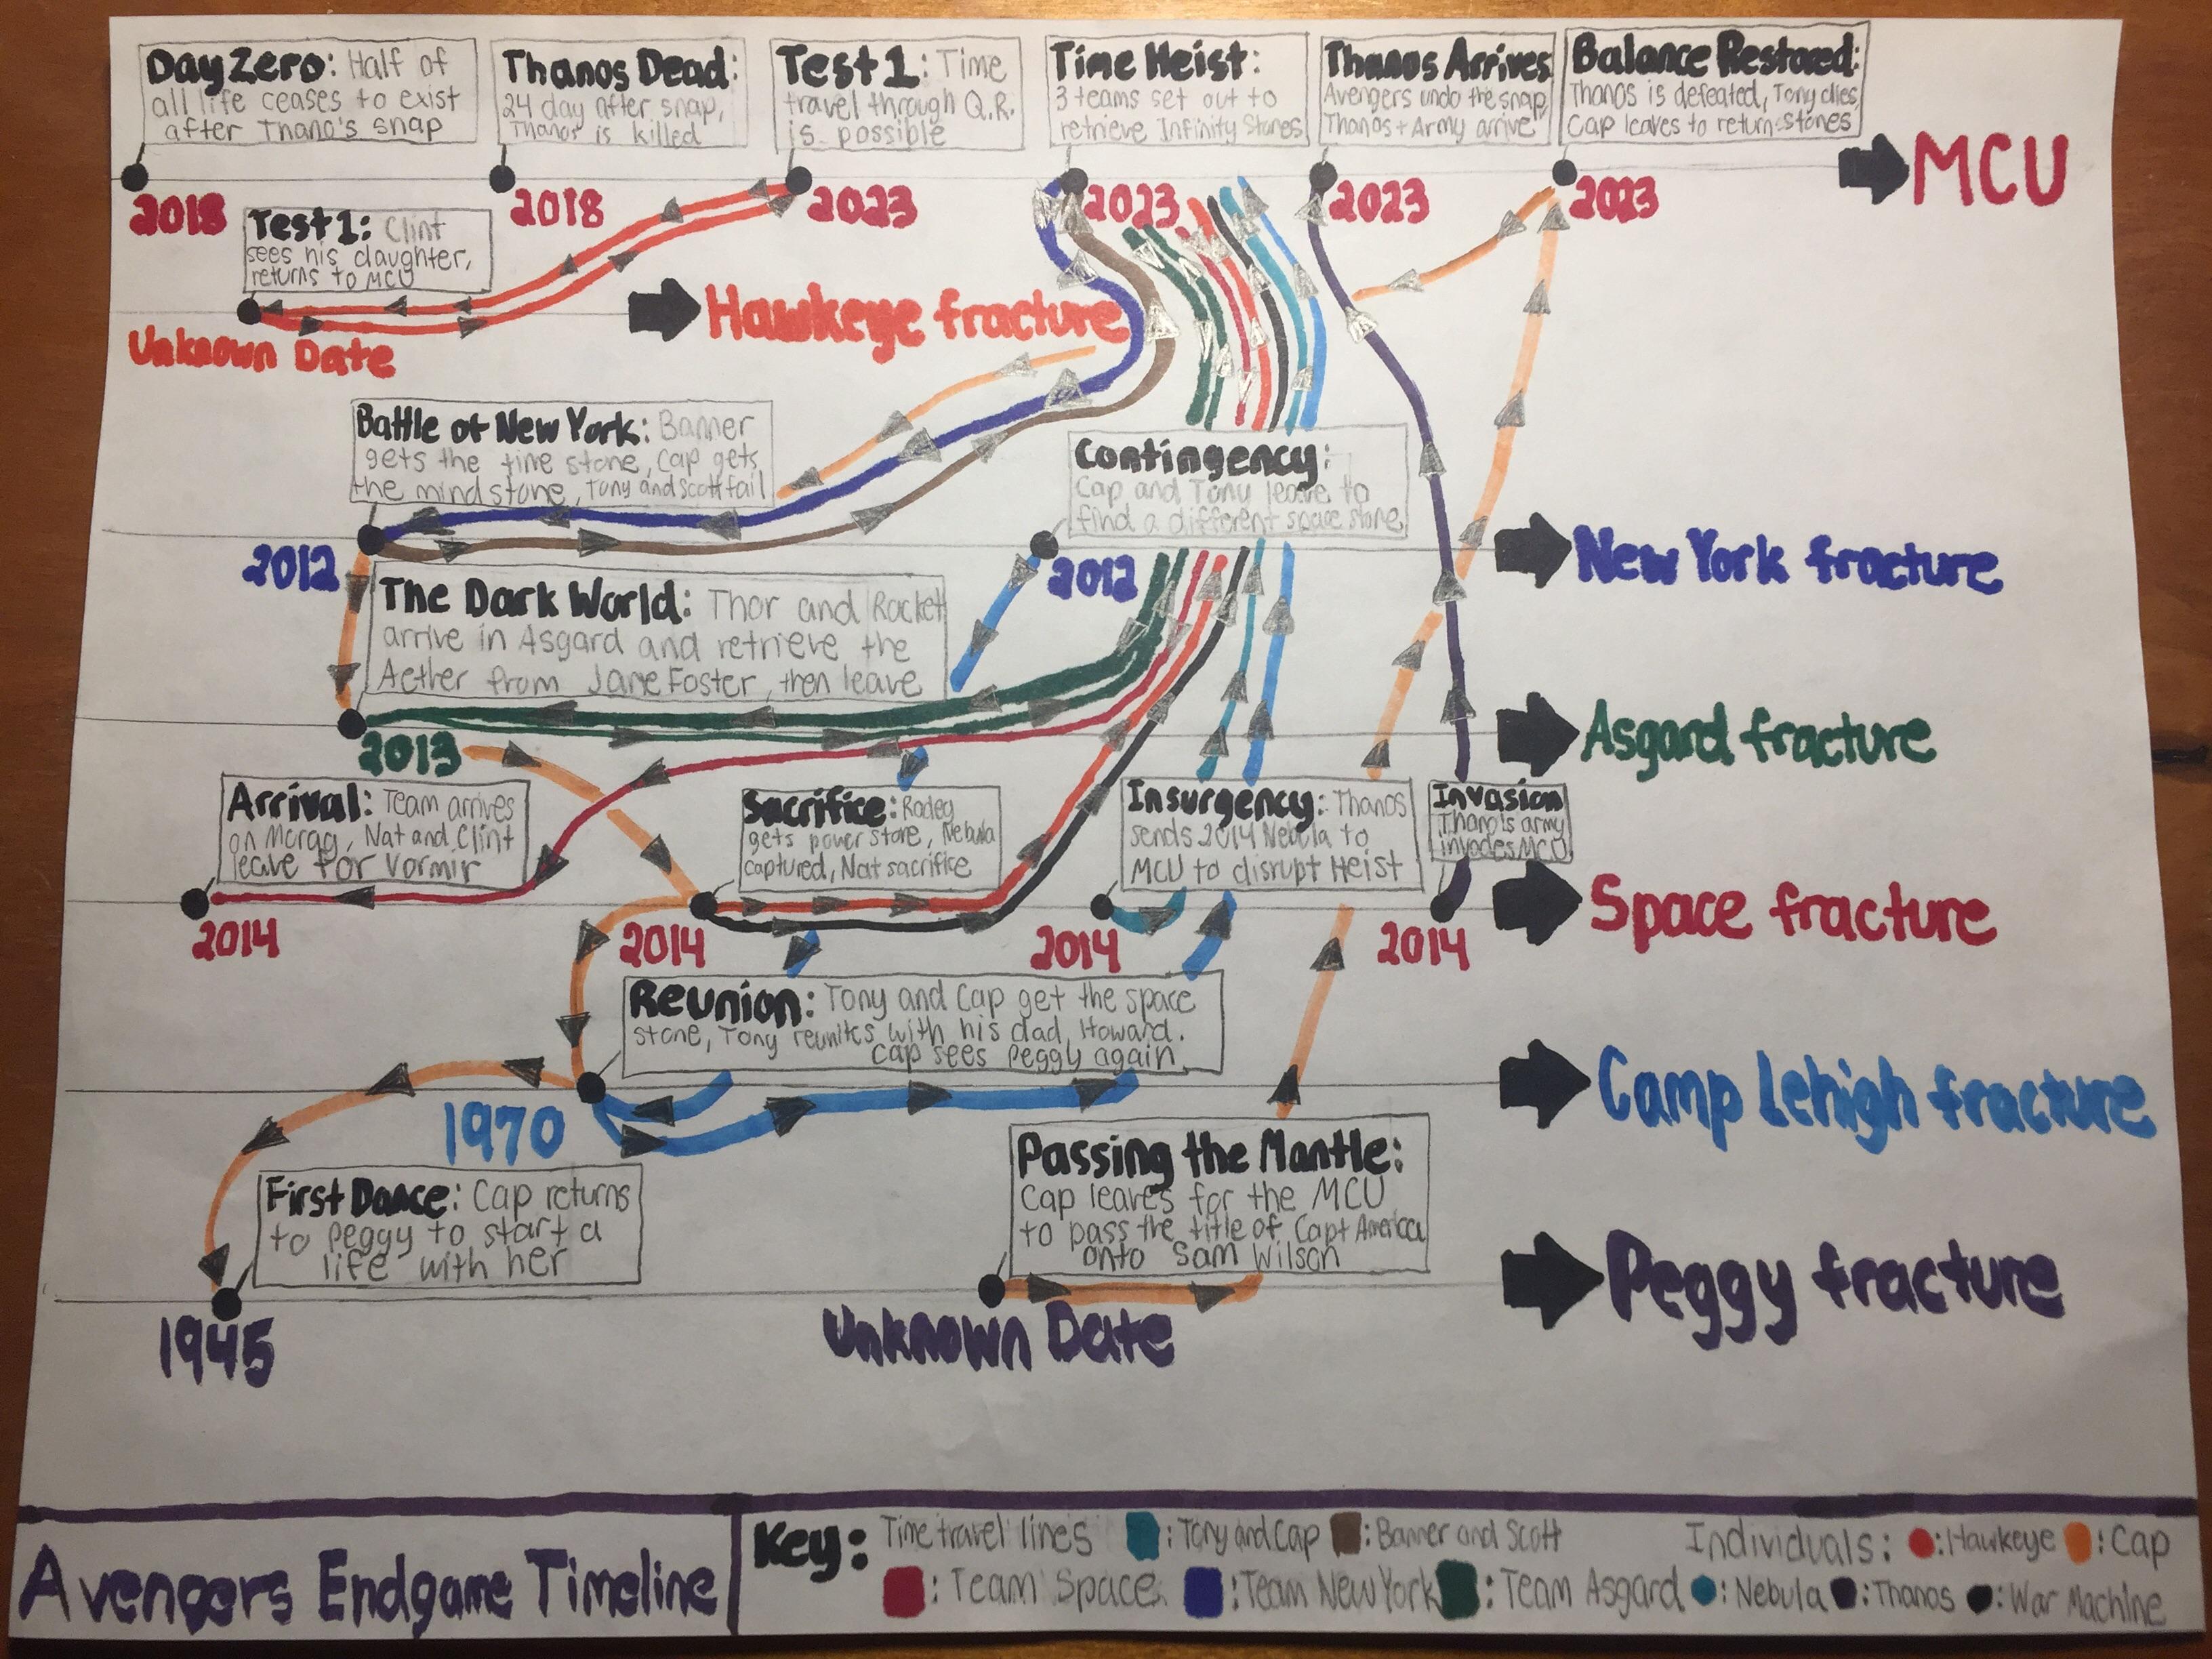 Day Zero: Half of
all life ceases to exist
after Thano's snap
Thanos Dead:
24 day after snap,
Thanos is killed
Test 1: Time
travel through Q.R.
is possible
Time Heist:
3 teams set out to
retrieve Infinity Stones
Thanos Arrives
Avengers undo the snap,
Thanos + Army arrive
Balance Restored:
Thanos is defeated, Tony dies,
Cap leaves to return stones
MCU
2018
2018
2023
2023
2023
2023
Test 1: Clint
sees his daughter,
returns to MCU
Hawkeye fracture
Unknown Date
Battle of New York: Banner
gets the time stone, Cap gets
the mind stone, Tony and Scott fail
Contingency:
Cap and Tony leave to
find a different space stone
2012
2012
New York fracture
The Dark World: Thor and Rocket
arrive in Asgard and retrieve the
Aether from Jane Foster, then leave
2013
Asgard fracture
Arrival: Team arrives
on Morag, Nat and Clint
leave for Vormir
Sacrifice: Rodey
gets power stone, Nebula
captured, Nat sacrifice
Insurgency: Thanos
sends 2014 Nebula to
MCU to disrupt Heist
Invasion
Thanos army
invades MCU
2014
2014
2014
2014
Space fracture
Reunion: Tony and Cap get the space
stone, Tony reunites with his dad, Howard.
Cap sees Peggy again
1970
Camp Lehigh fracture
First Dance: Cap returns
to Peggy to start a
life with her
Passing the Mantle:
Cap leaves for the MCU
to pass the title of Capt America
onto Sam Wilson
1945
Unknown Date
Peggy fracture
Avengers Endgame Timeline
Key: Time travel lines : Tony and Cap : Banner and Scott Individuals: : Hawkeye : Cap
: Team Space : Team New York : Team Asgard : Nebula : Thanos : War Machine